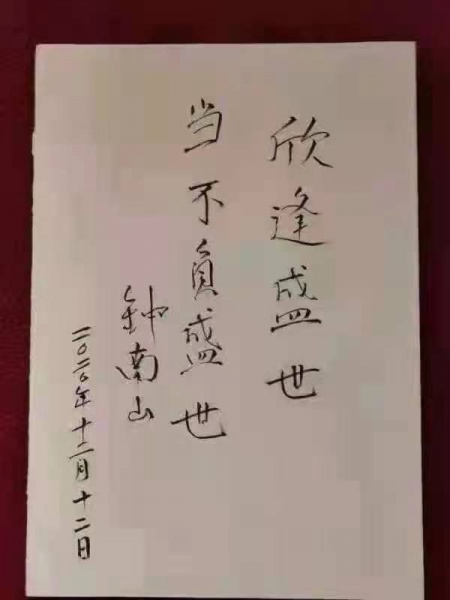 欣逢盛世
当不負盛世
钟南山
二〇二〇年十二月十二日